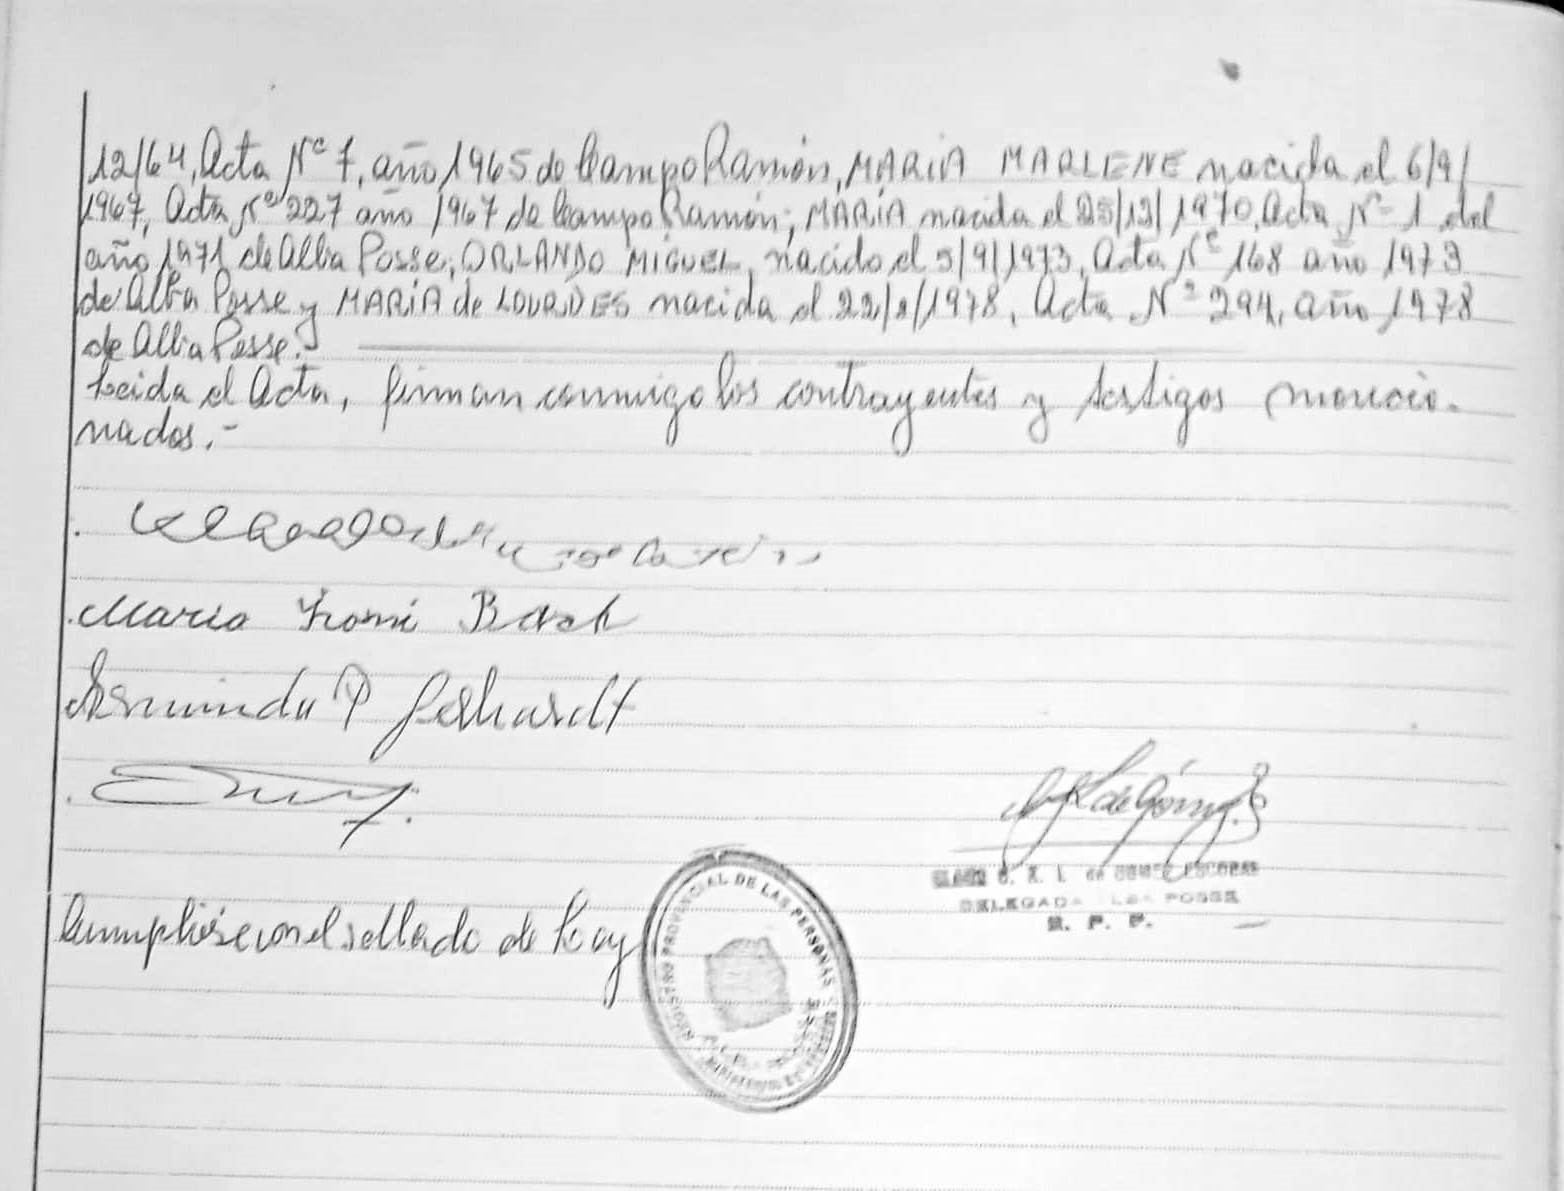 12/64, Acta Nº 7, año 1965 de Campo Ramón, MARIA MARLENE nacida el 6/9/
1967, Acta Nº 227 año 1967 de Campo Ramón; MARIA nacida el 25/12/1970, Acta Nº 1 del
año 1971 de Alba Posse; ORLANDO MIGUEL, nacido el 5/9/1973, Acta Nº 168 año 1973
de Alba Posse y MARIA de LOURDES nacida el 22/ /1978, Acta Nº 294, año 1978
de Alba Posse.
Leida el Acta, firman conmigo los contrayentes y testigos mencio-
nados.-
Maria
Erminda P Gerhardt
de Gómez
DELEGADA POSSE
R. P. P.
Cumpliose con el sellado de Ley
REGISTRO PROVINCIAL DE LAS PERSONAS